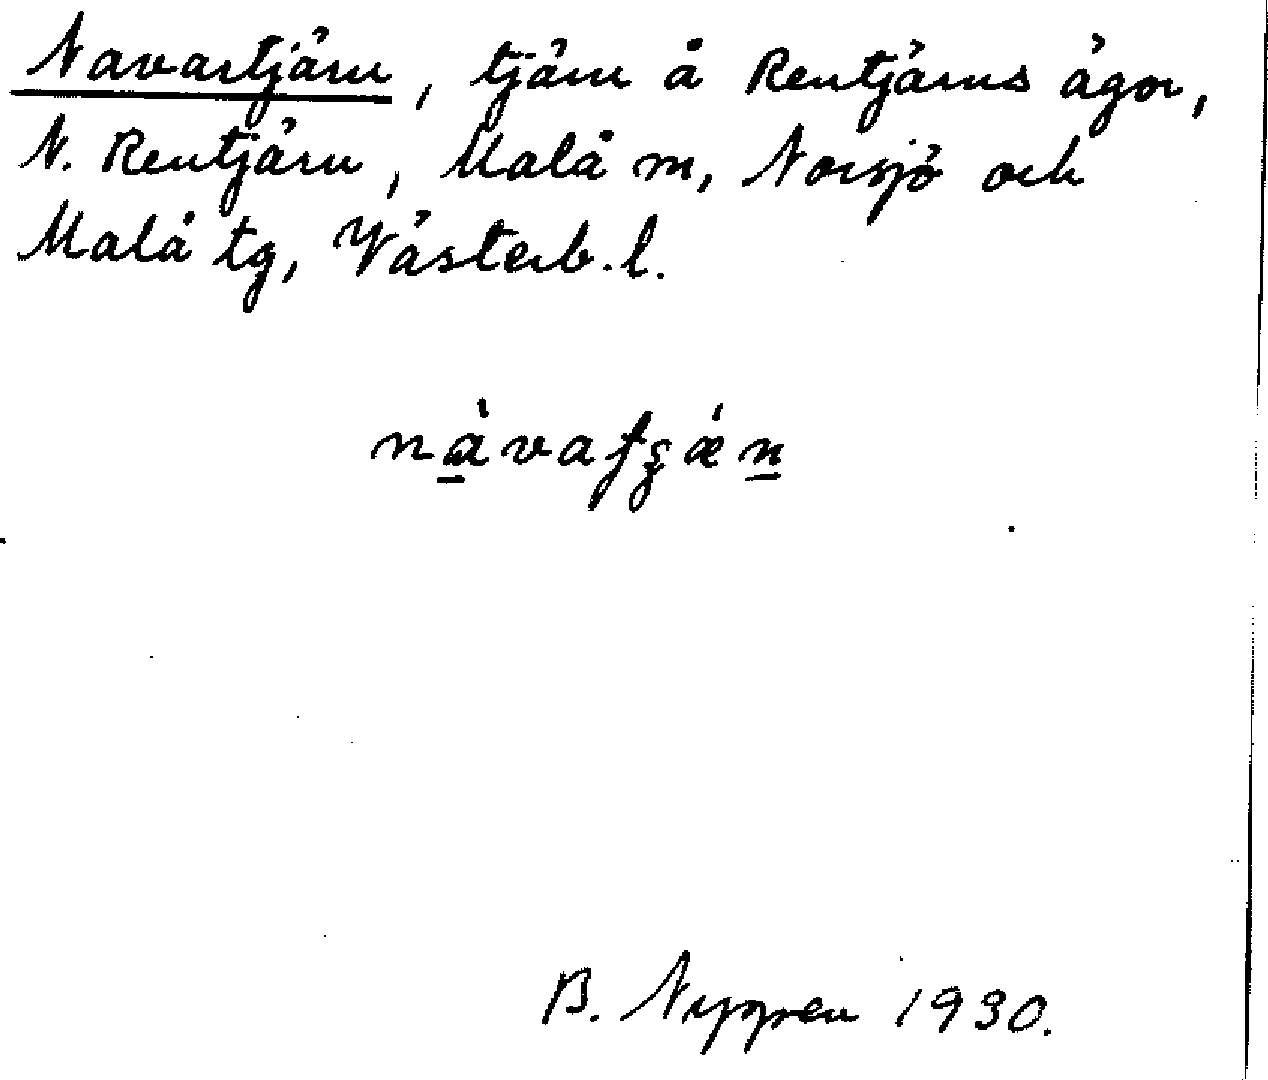 Navartjärn, tjärn å Rentjärns ägor,
N. Rentjärn, Malå m, Norsjö och
Malå tg, Västerb. l.
B. Nygren 1930.